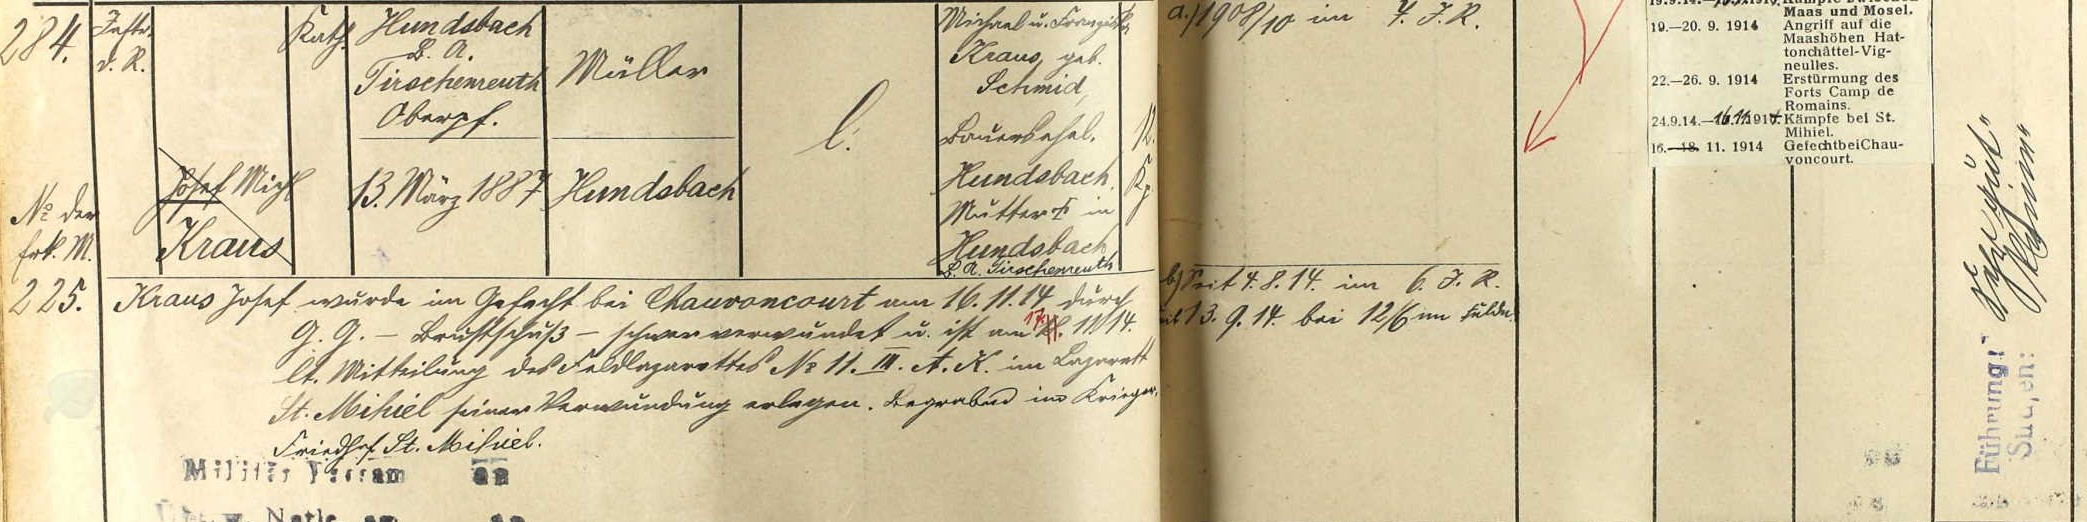 284.
Inftr.
d. R.
Josef Michl
Kraus
Kath.
Hundsbach
B. A.
Tirschenreuth
Oberpf.
13. März 1887
Müller
Hundsbach
l.
Michael u. Franziska
Kraus, geb.
Schmid,
Bauersehel.
Hundsbach,
Mutter † in
Hundsbach
B. A. Tirschenreuth
12.
Kp.
No der
Erk. M.
225.
Kraus Josef wurde im Gefecht bei Chauvoncourt am 16.11.14 durch
G. G. – Brustschuß – schwer verwundet u. ist am 17. 11 14.
lt. Mitteilung des Feldlazarettes No 11. III. A. K. im Lazarett
St. Mihiel seiner Verwundung erlegen. Begraben im Krieger-
Friedhof St. Mihiel.
a.) 1908/10 im 7. J. R.
b) Seit 4. 8. 14. im 6. J. R.
13. 9. 14. bei 12/6 im Felde.
Maas und Mosel.
19.—20. 9. 1914 Angriff auf die
Maashöhen Hat-
tonchâttel-Vig-
neulles.
22.—26. 9. 1914 Erstürmung des
Forts Camp de
Romains.
24.9.14.—16.11.1914 Kämpfe bei St.
Mihiel.
16.—18. 11. 1914 Gefecht bei Chau-
voncourt.
Führung: "Sehr gut"
Strafen: "Keine"